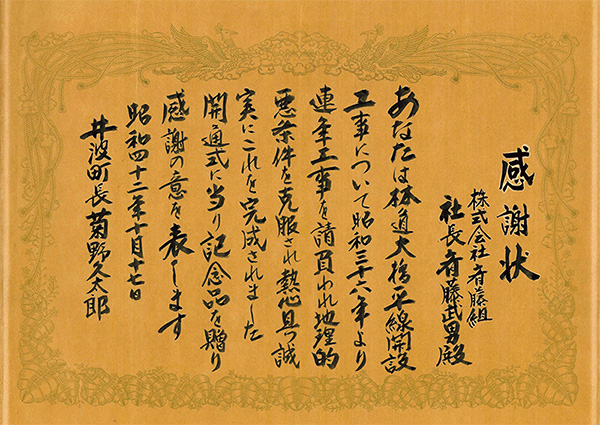 感謝状
株式会社斉藤組
社長斉藤武男殿
あなたは林道大揚平線開設
工事について昭和三十六年より
連年工事を請負われ地理的
悪条件を克服され熱心且つ誠
実にこれを完成されました
開通式に当り記念品を贈り
感謝の意を表します
昭和四十二年十月十七日
井波町長菊野久太郎